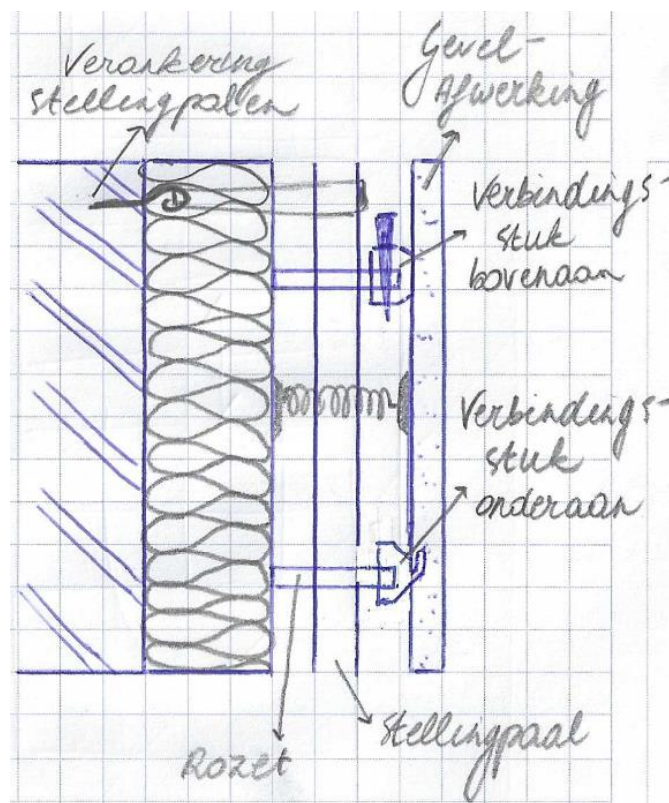 Verankering
stellingpalen
Gevel-
Afwerking
Verbindings-
stuk
bovenaan
Verbindings-
stuk
onderaan
Rozet
Stellingpaal